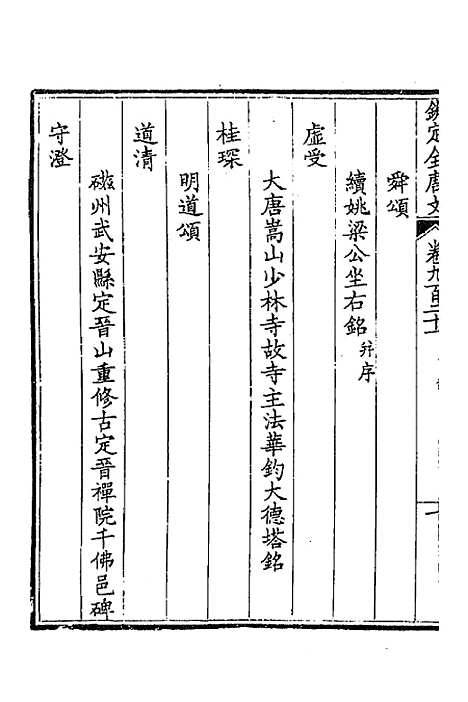 欽定全唐文 卷九百二十二
舜頌
續姚梁公坐右銘并序
虛受
大唐嵩山少林寺故寺主法華鈞大德塔銘
桂琛
明道頌
道清
磁州武安縣定晉山重修古定晉禪院千佛邑碑
守澄